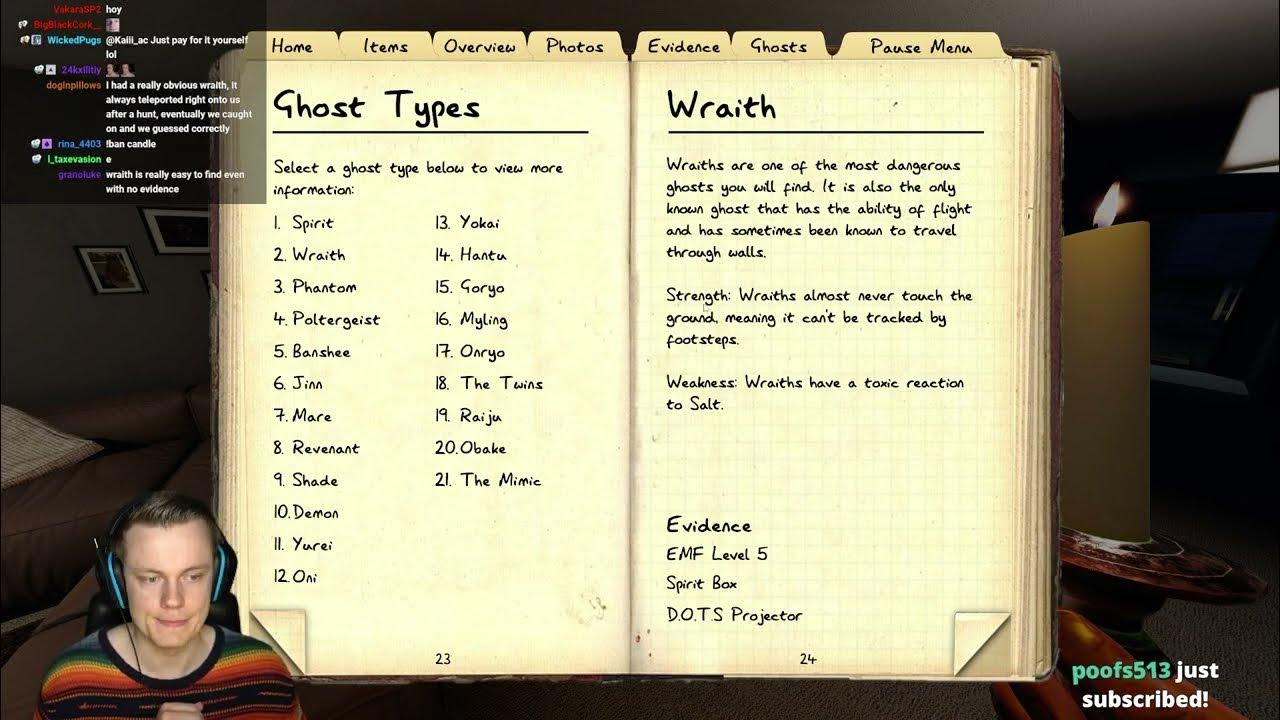 VakaraSP2 hoy
BigBlackCork__
WickedPugs @Kaiii_ac Just pay for it yourself
lol
24kxilitiy
doginpillows I had a really obvious wraith, it
always teleported right onto us
after a hunt, eventually we caught
on and we guessed correctly
rina_4403 !ban candle
l_taxevasion e
granoluke wraith is really easy to find even
with no evidence
Home Items Overview Photos Evidence Ghosts Pause Menu
Ghost Types
Select a ghost type below to view more
information:
1. Spirit
2. Wraith
3. Phantom
4. Poltergeist
5. Banshee
6. Jinn
7. Mare
8. Revenant
9. Shade
10. Demon
11. Yurei
12. Oni
13. Yokai
14. Hantu
15. Goryo
16. Myling
17. Onryo
18. The Twins
19. Raiju
20. Obake
21. The Mimic
23
Wraith
Wraiths are one of the most dangerous
ghosts you will find. It is also the only
known ghost that has the ability of flight
and has sometimes been known to travel
through walls.
Strength: Wraiths almost never touch the
ground, meaning it can't be tracked by
footsteps.
Weakness: Wraiths have a toxic reaction
to Salt.
Evidence
EMF Level 5
Spirit Box
D.O.T.S Projector
24
poofs513 just
subscribed!